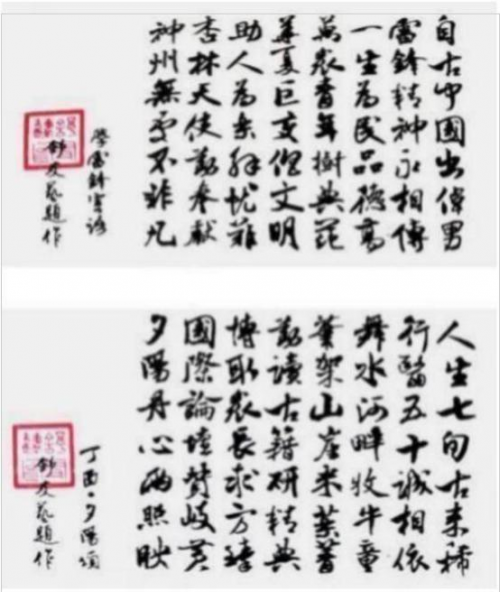 自古中國出偉男
雷鋒精神永相傳
一生為民品德高
萬衆青年樹典范
華夏巨变促文明
助人為樂解忧
杏林天使勤奉獻
神州無 不非凡
學雷鋒寄語
舒友藝題作
人生七旬古来稀
行醫五十誠相依
舞水河畔牧牛童
架山 采藥
勤讀古籍研精典
博取衆長求方臻
國際論壇贊岐黄
夕陽丹心 照映
丁酉·夕陽頌
舒友藝題作